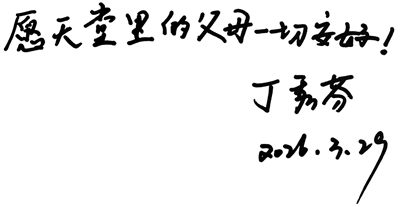 愿天堂里的父母一切安好！
丁秀芬
2026.3.29